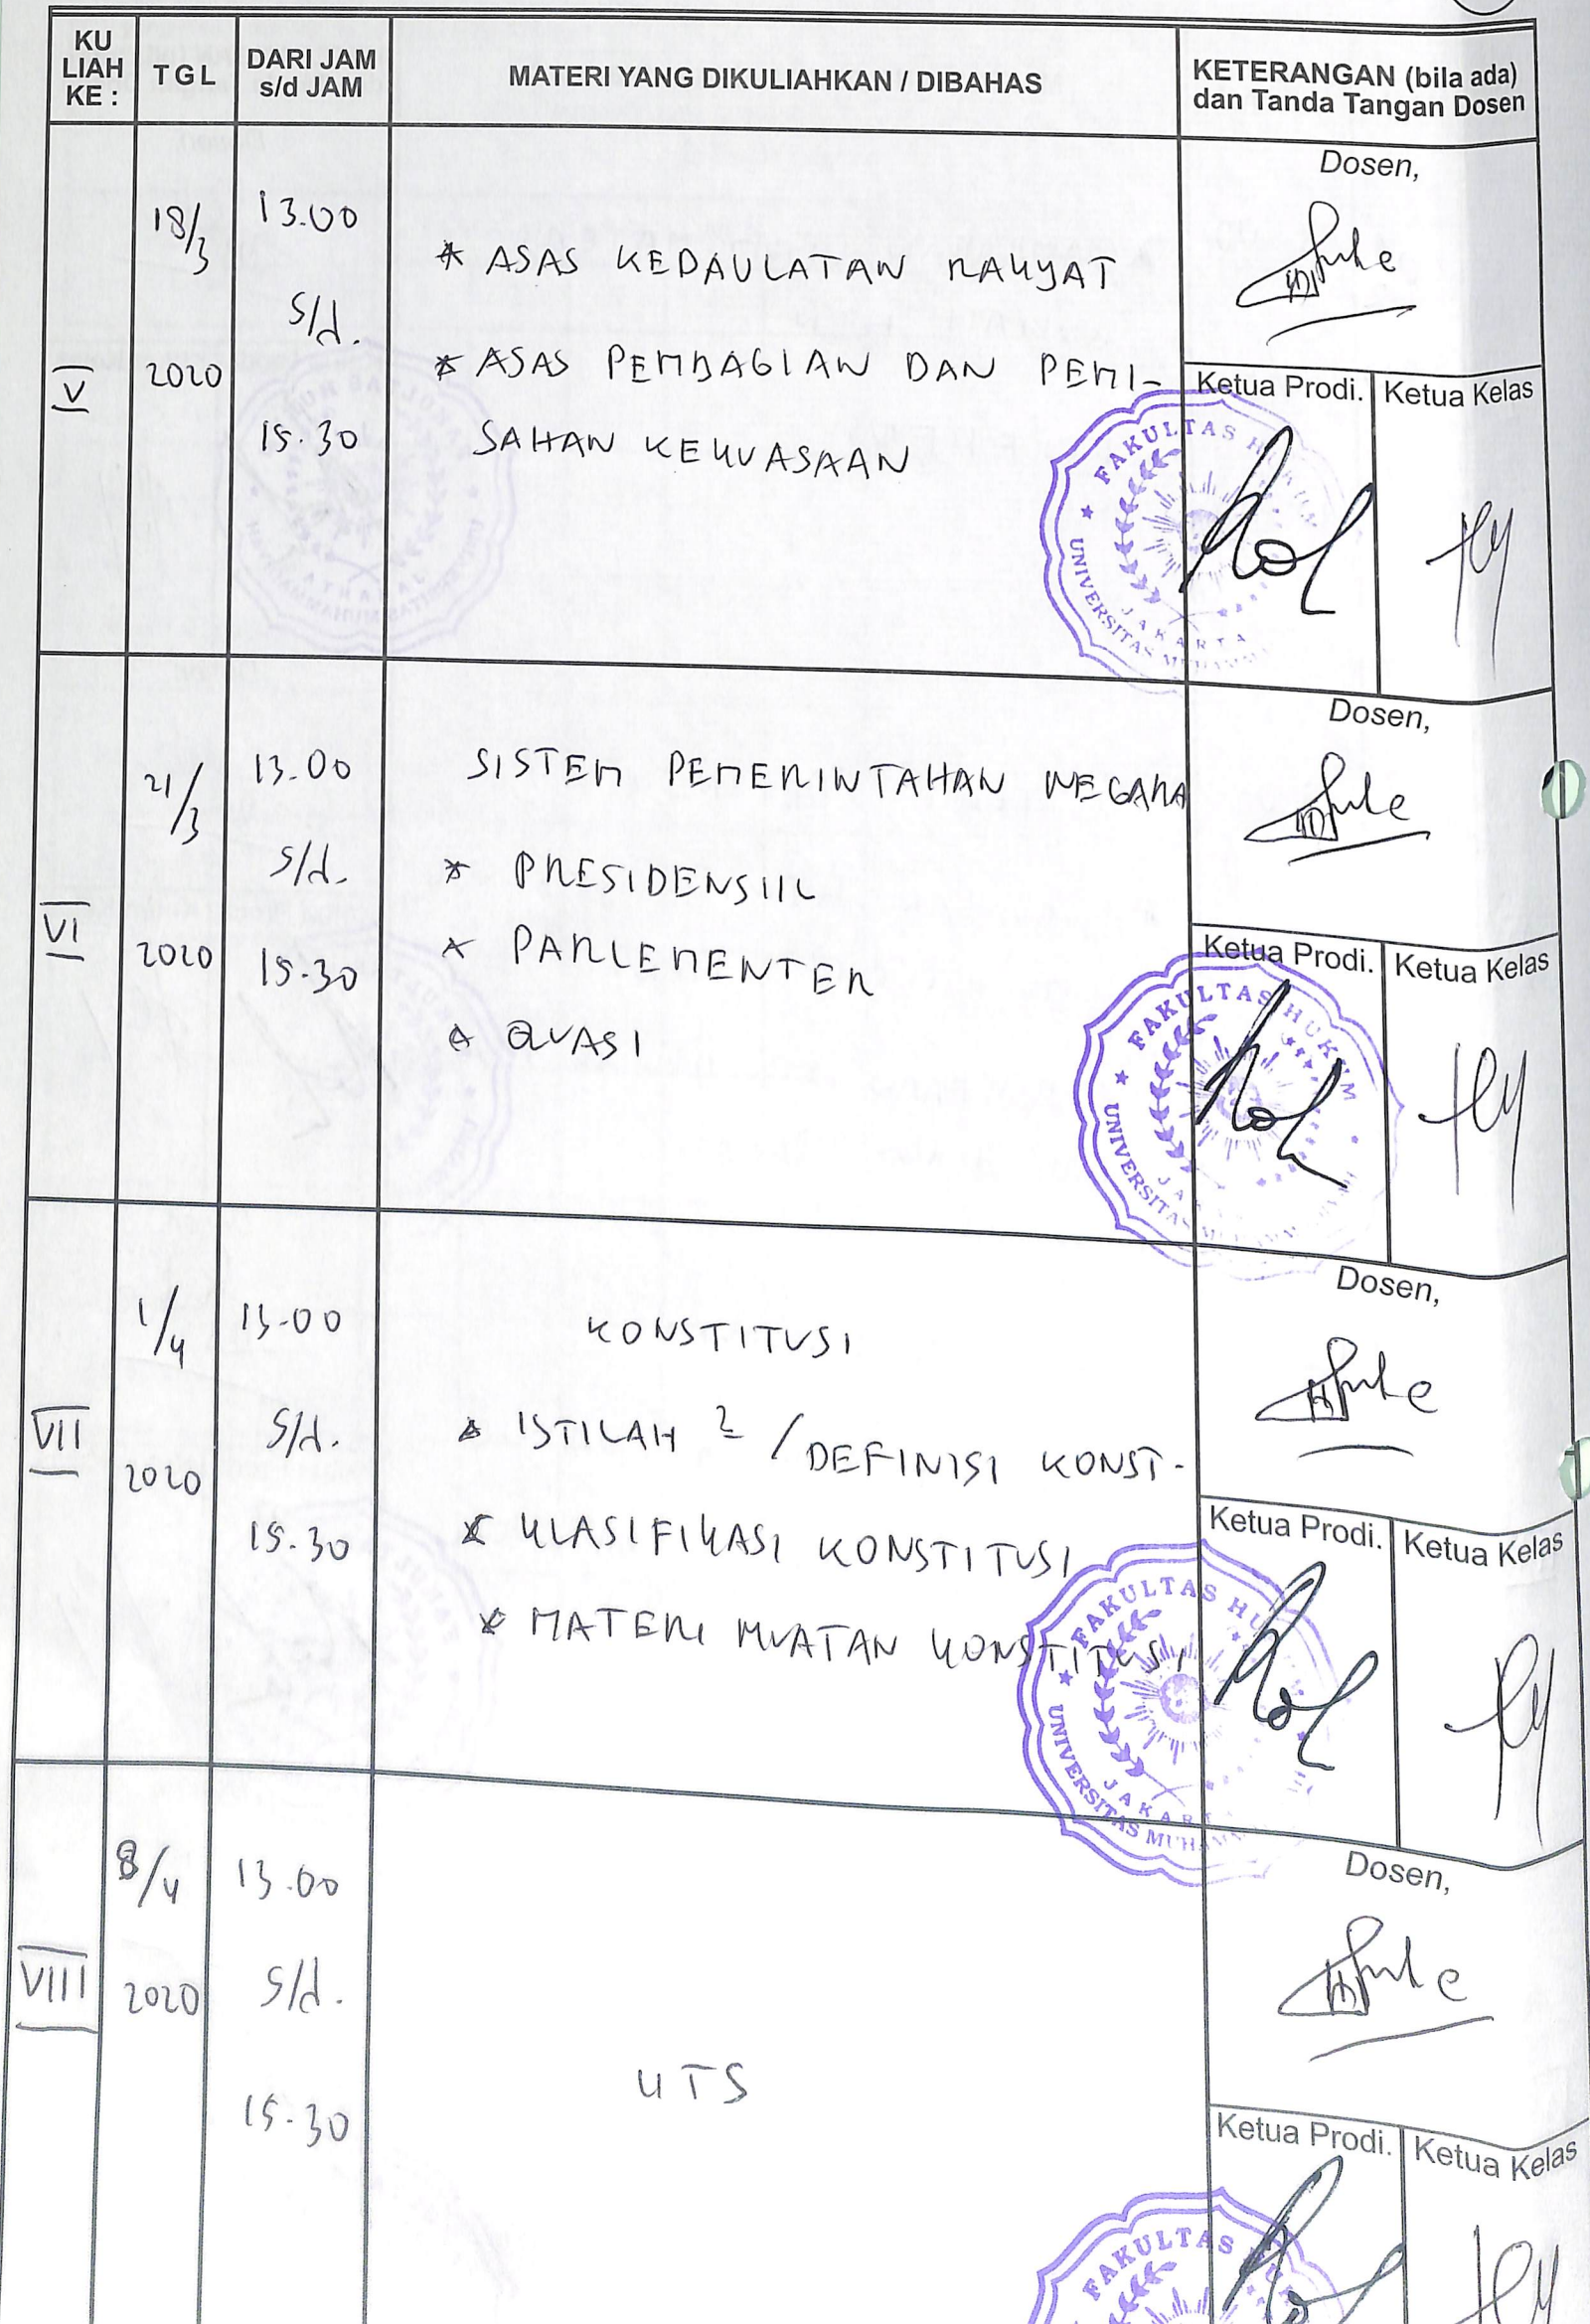 KU
LIAH
KE :
TGL
DARI JAM
s/d JAM
MATERI YANG DIKULIAHKAN / DIBAHAS
KETERANGAN (bila ada)
dan Tanda Tangan Dosen
V
18/3
2020
13.00
s/d.
15.30
* ASAS KEDAULATAN RAKYAT
* ASAS PEMBAGIAN DAN PEMI-
SAHAN KEKUASAAN
Dosen,
Ketua Prodi.
Ketua Kelas
FAKULTAS HUKUM
UNIVERSITAS
JAKARTA
VI
21/3
2020
13.00
s/d.
15.30
SISTEM PEMERINTAHAN NEGARA
* PRESIDENSIIL
* PARLEMENTER
* QUASI
Dosen,
Ketua Prodi.
Ketua Kelas
FAKULTAS HUKUM
UNIVERSITAS
VII
1/4
2020
13.00
s/d.
15.30
KONSTITUSI
* ISTILAH 2 / DEFINISI KONST-
* KLASIFIKASI KONSTITUSI
* MATERI MUATAN KONSTITUSI
Dosen,
Ketua Prodi.
Ketua Kelas
FAKULTAS
UNIVERSITAS
VIII
8/4
2020
13.00
s/d.
15.30
UTS
Dosen,
Ketua Prodi.
Ketua Kelas
FAKULTAS